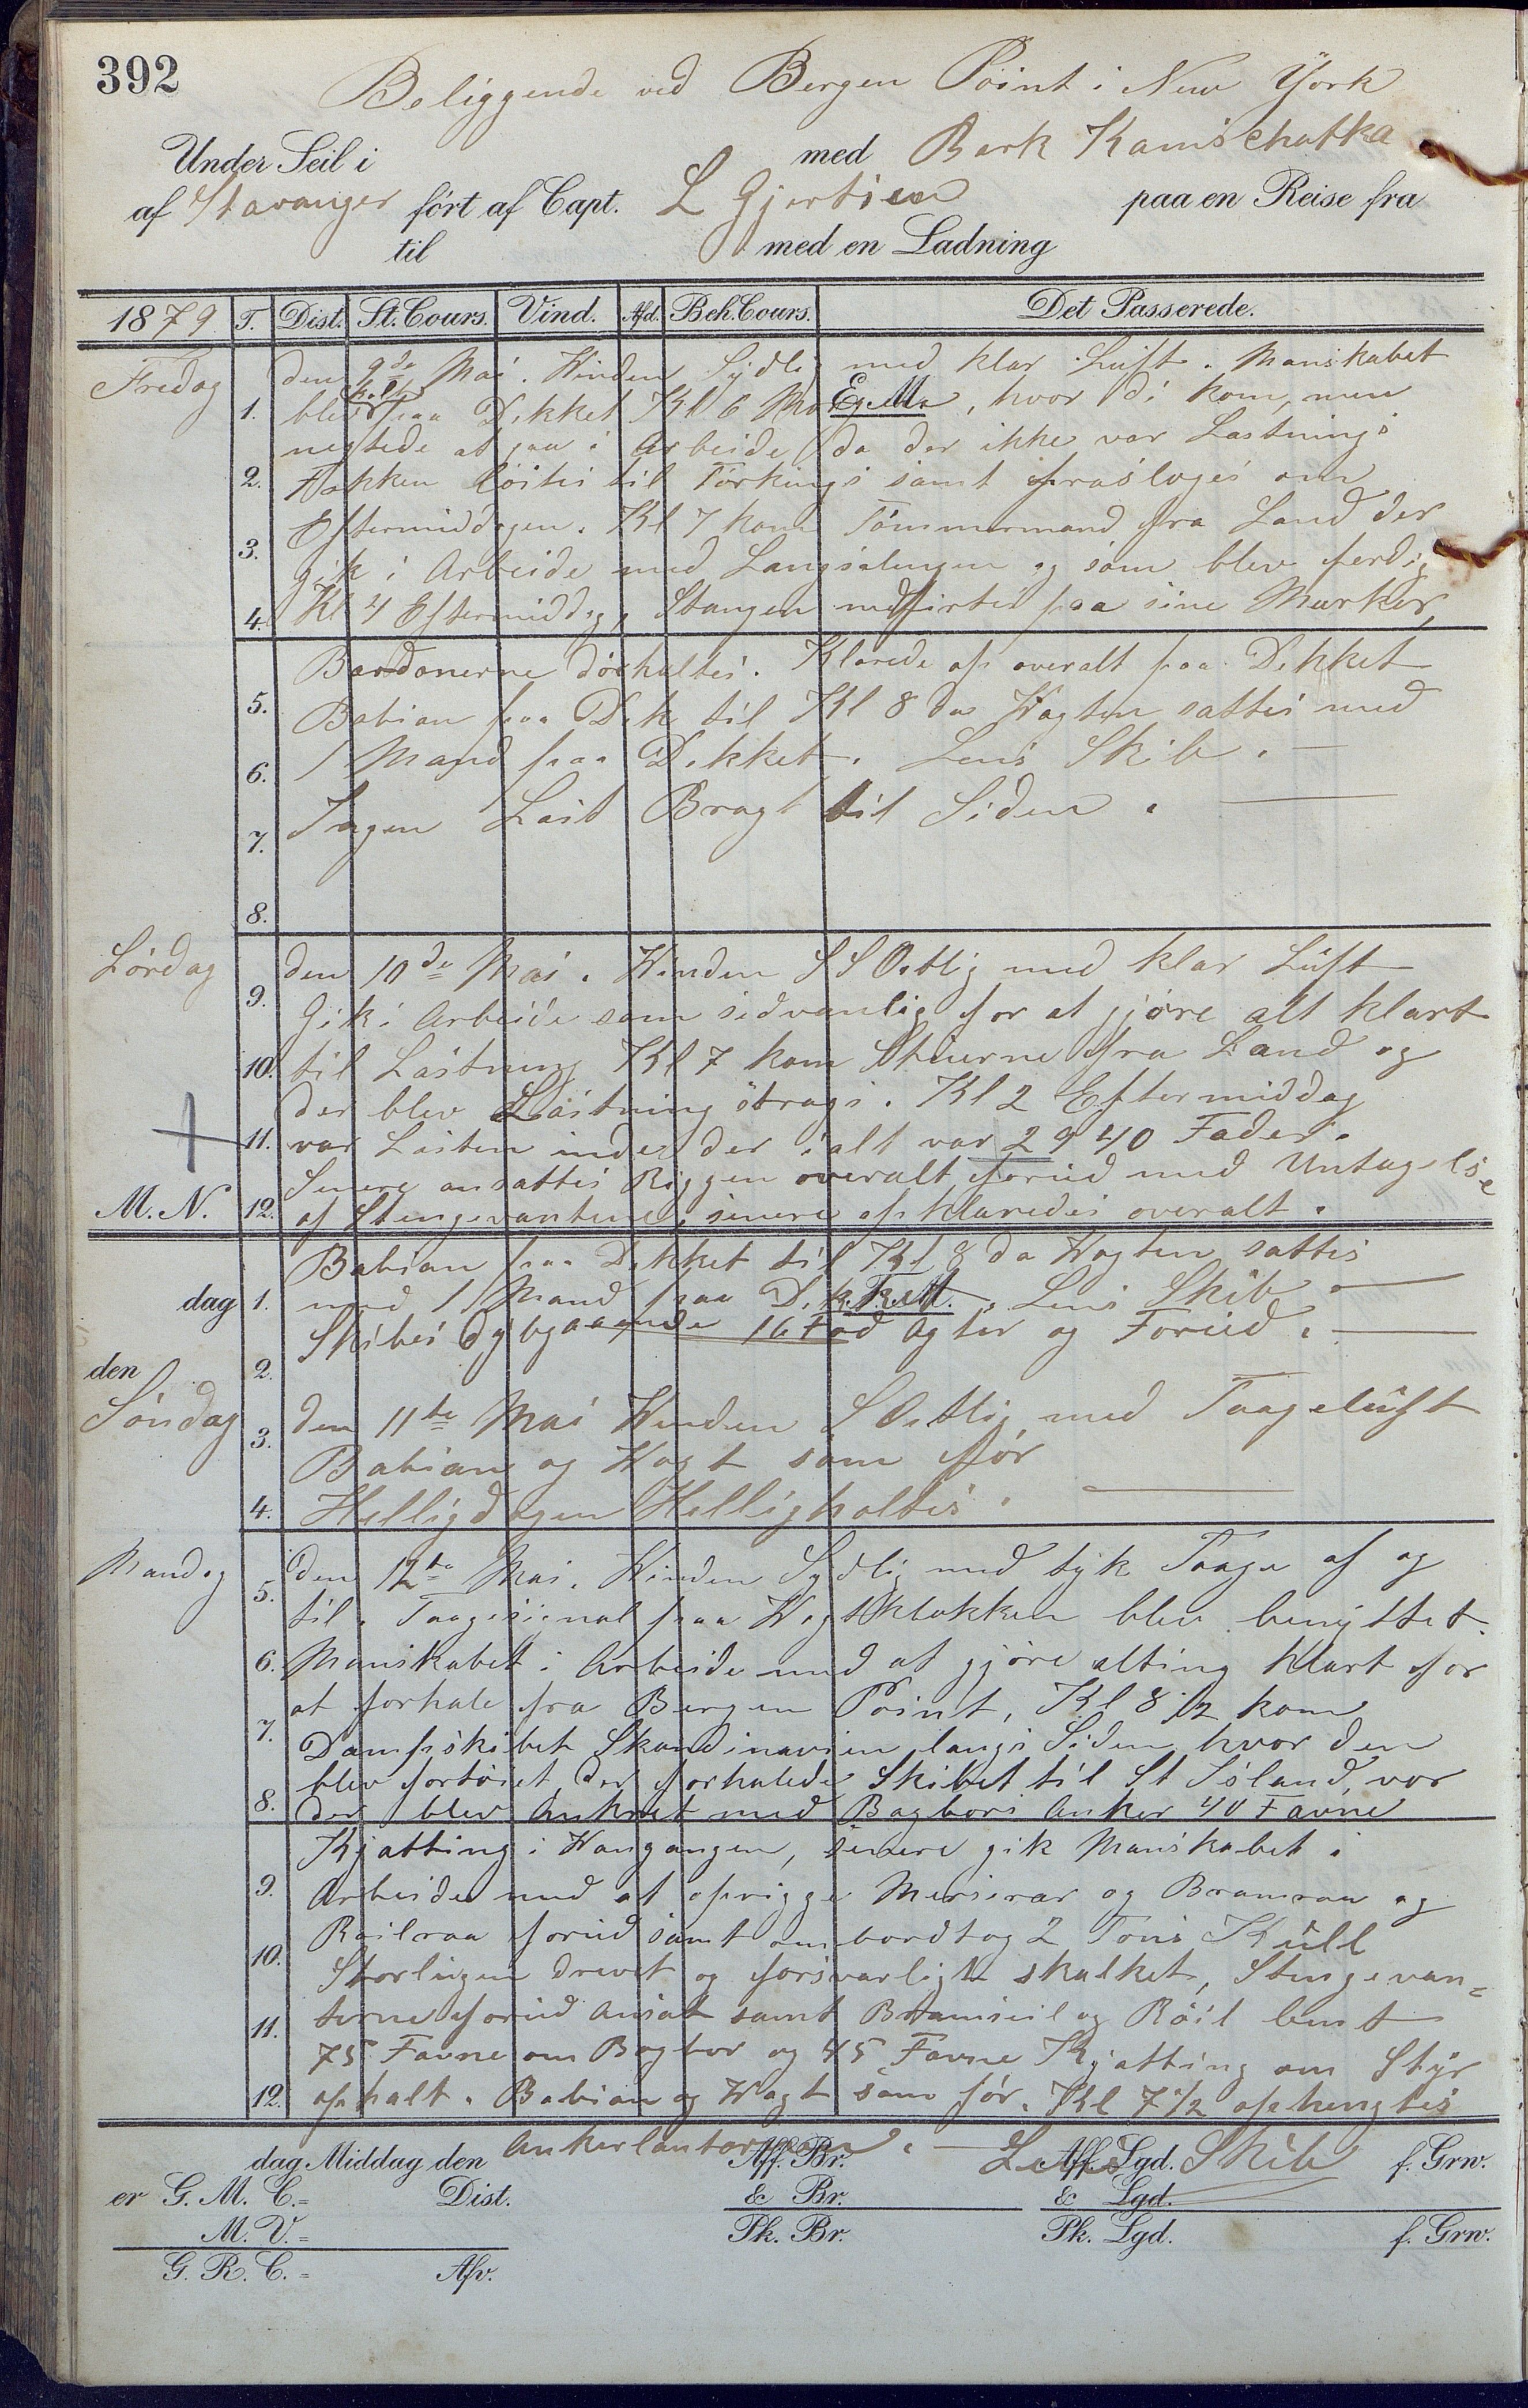 392
Beliggende ved Bergen Point i New York
Under Seil i med Bark Kamschatka
af Stavanger ført af Capt. L Gjertsen paa en Reise fra
til med en Ladning
1879 T. Dist. St. Cours. Vind. Afd. Beh. Cours. Det Passerede.
Fredag den 9de Mai. Winden Sydlig med klar Luft. Manskabet
1. blev kaldt paa Dekket Kl 6 Mo E.g.M., hvor di kom, men
negtede at gaa i Arbeide da der ikke var Lastnings
2. Fokken løstes til Tørkings samt frasloges om
Eftermiddagen. Kl 7 kom Tømmermand fra Land der
3. gik i Arbeide med Langsalingen og som blev ferdig
4. Kl 4 Eftermiddag, Stangen nedfirtes paa sine Merker,
Bardonerne døshaltes. Klarede op overalt paa Dekket
5. Babian paa Dek til Kl 8 da Wagten sattes med
6. 1 Mand paa Dekket. Lens Skib.
7. Ingen Last Bragt til Siden.
8.
Lørdag den 10de Mai. Winden SSOstlig med klar Luft
9. Gik i Arbeide som sedvanlig for at gjøre alt klart
10. til Lastning Kl 7 kom Stuerne fra Land og
der blev Lastning strags. Kl 2 Eftermiddag
11. var Lasten inde der ialt var 2940 Fader.
Senere ansattes Riggen overalt forud med Untagelse
M. N. 12. af Stengevantene, senere opklaredes overalt.
Babian paa Dekket til Kl 8 da Wagten sattes
dag 1. med 1 Mand paa D.k.K.e.M. Lens Skib
Skibes Dybgaaende 16 Fod Agter og Forud.
den 2.
Søndag den 11te Mai Winden SOstlig med Taageluft
3. Babian og Wagt som før
4. Helligdagen Helligholtes.
Mandag den 12te Mai. Winden Sydlig med tyk Taage af og
5. til. Taagesignal paa Wagtklokken blev benyttet.
6. Manskabet i Arbeide med at gjøre alting klart for
at forhale fra Bergen Point, Kl 8 1/2 kom
7. Dampskibet Skandinavien langs Siden hvor den
blev fortøiet der forhalede Skibet til St Island, vor
8. der blev Ankret med Bagbors Anker 40 Favne
Kjatting i Wangangen, senere gik Manskabet i
9. Arbeide med at oprigge Merseraa og Bramraa og
Roilraa forud samt ombordtog 2 Tons Kull
10. Storlugen drevet og forsvarligt skalket, Stengevan=
terne forud Ansat samt Bramseil og Røil bent
11. 75 Favne om Bagbor og 45 Favne Kjatting om Styr
12. ophalt. Babian og Wagt som før. Kl 7 1/2 ophengtes
Ankerlanternen. Lens Skib
dag Middag den Aff. Br. Aff. Lgd. f. Grw.
er G. M. C.= Dist. & Br. & Lgd.
M. V.= Pk. Br. Pk. Lgd. f. Grw.
G. R. C.= Afv.